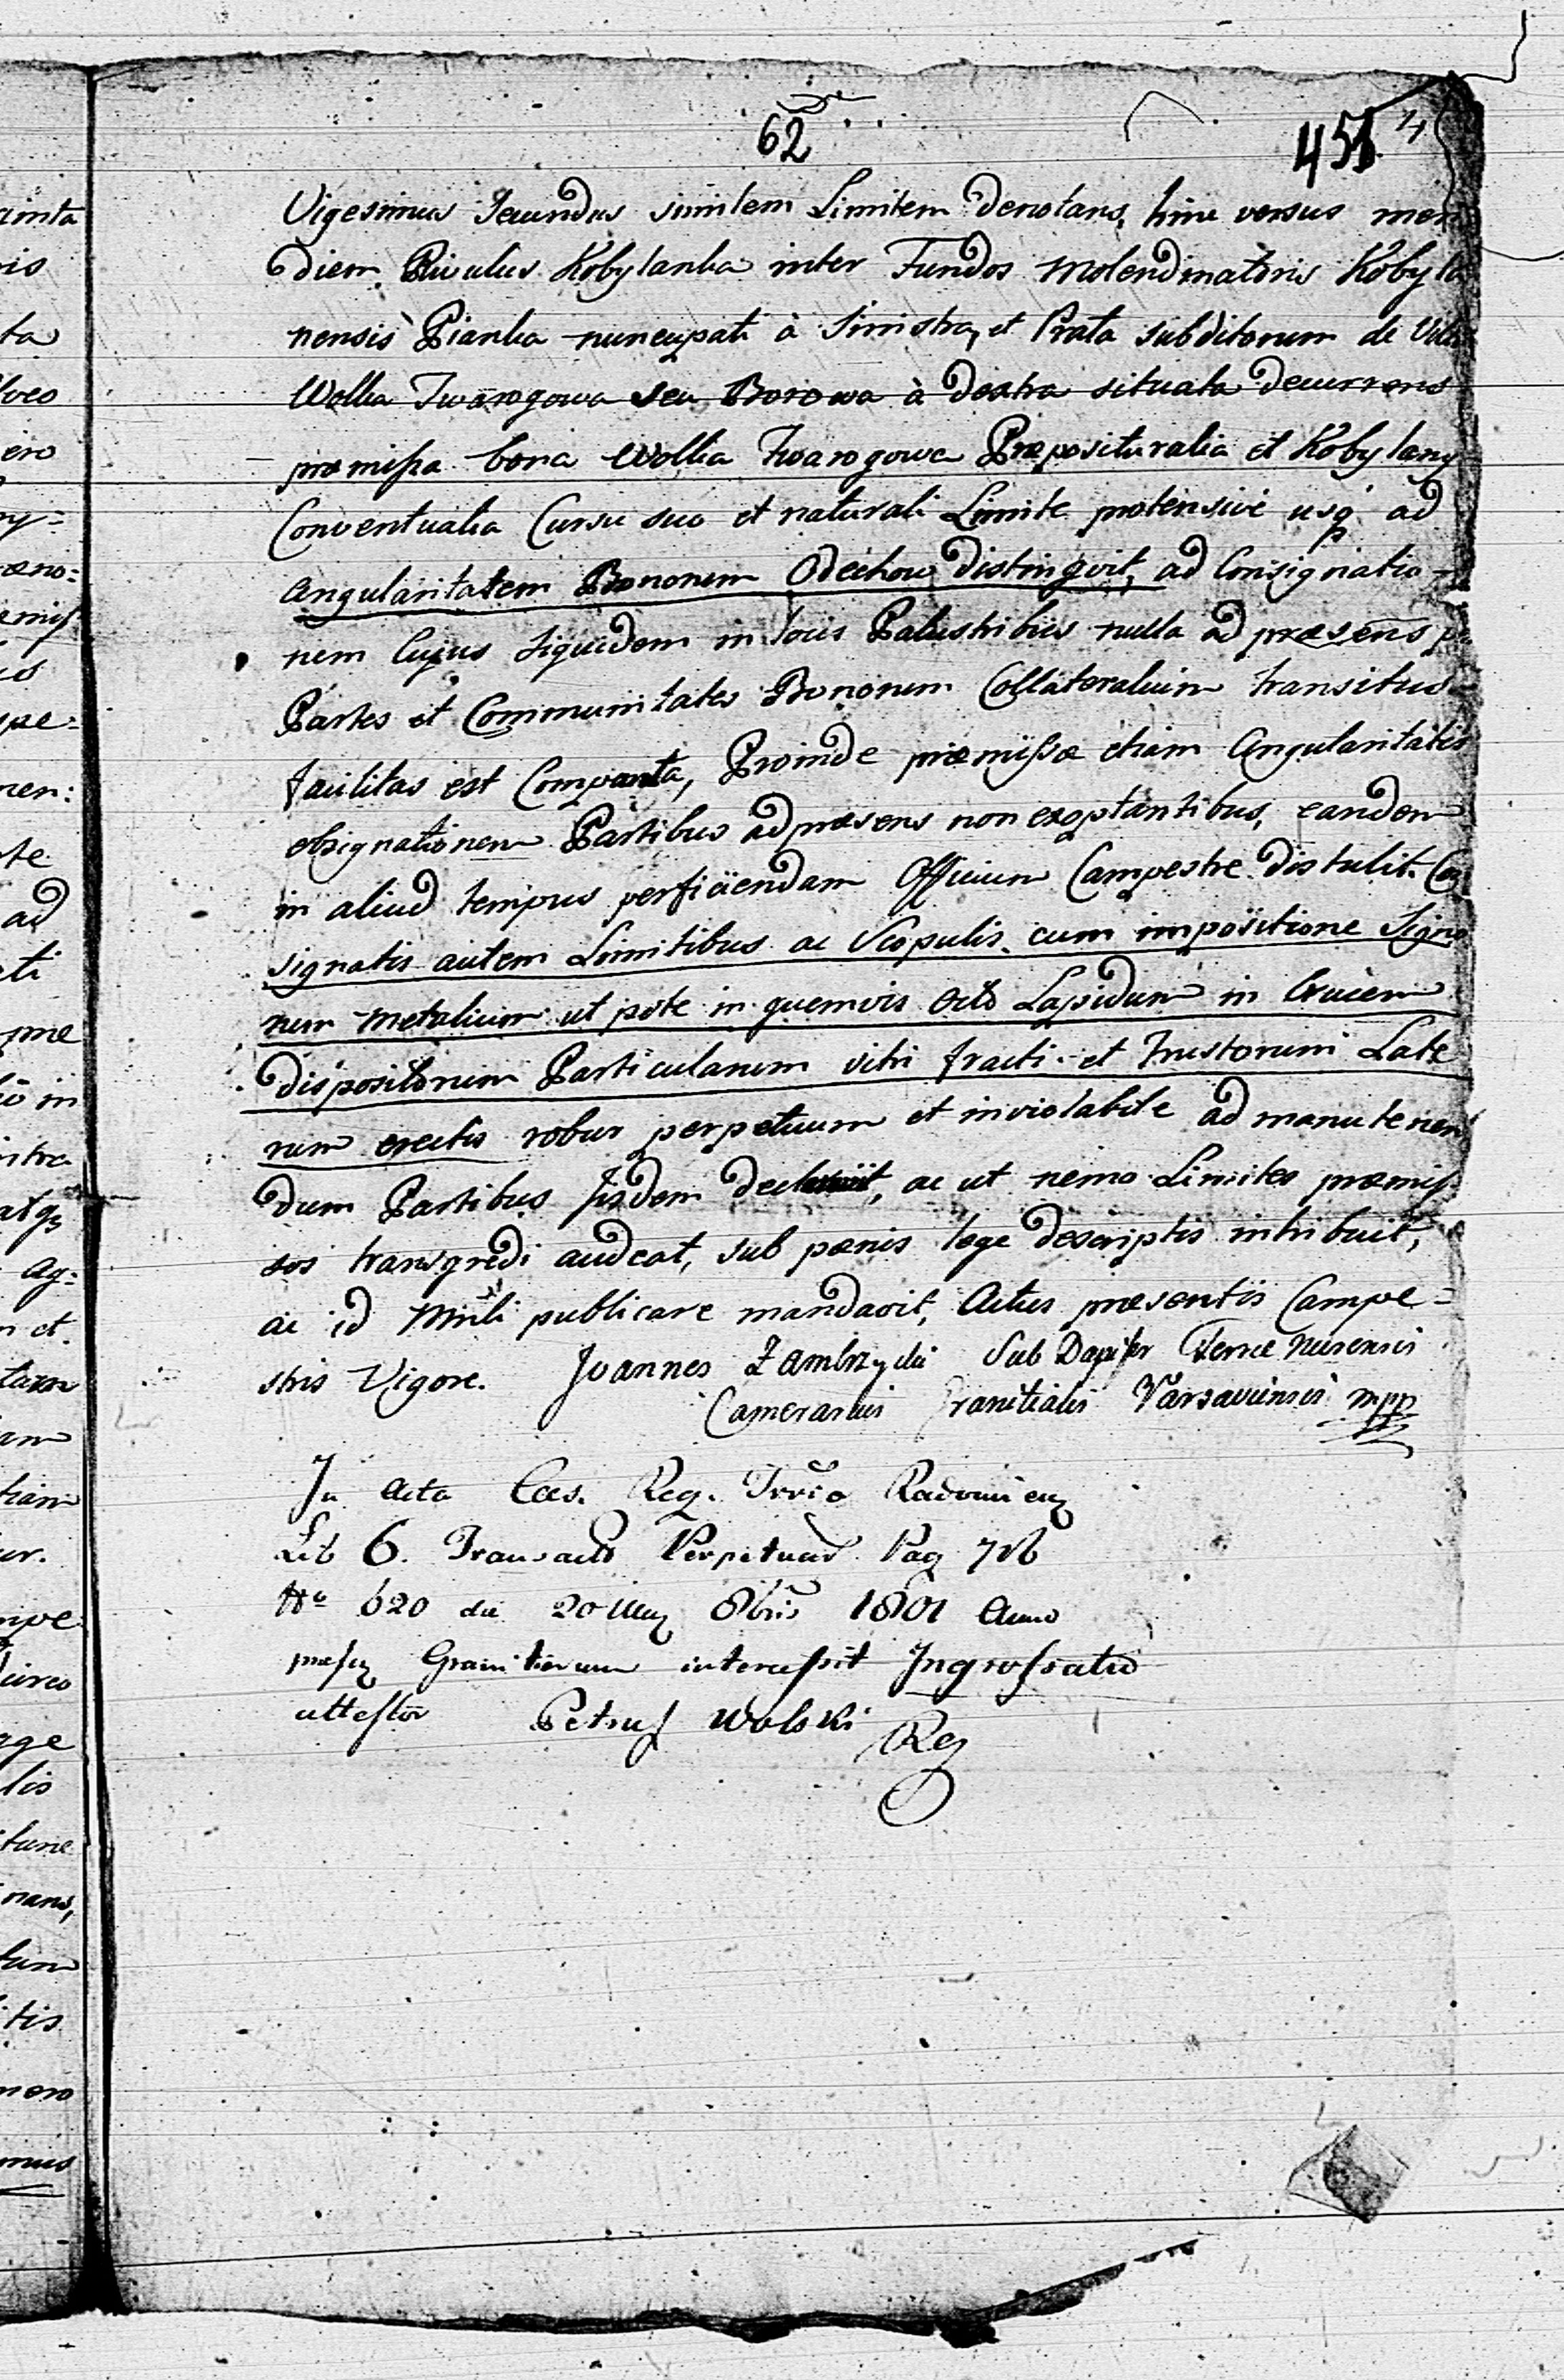 62
451 4
Vigesimus Secundus similem Limitem denotans, hinc versus meri
diem Rivulus Kobylanka inter Fundos Molendinatoris Kobyla
nensis Pianka nuncupati à Sinistra, et Prata subditorum de Villa
Wolka Twarogowa seu Borowa à dextra situata decurrens
præmissa bona Wolka Twarogowa Præposituralia et Kobylany
Conventualia Cursu suo et naturali Limite protensivè usq ad
angularitatem Bonorum Odechow distingvit, ad Consignatio-
nem Cujus Siquidem in locis Palustribus nulla ad præsens
Partes et Communitates Bonorum Collateralium transitus
facilitas est Comperta, Proinde præmissæ etiam Angularitatis
obsignationem Partibus ad præsens non exoptantibus, eandem
in aliud tempus perficiendam Officium Campestre distulit. Con
signatis autem Limitibus ac Scopulis cum impositione Signo
rum Metalicum ut pote in quemvis Octo Lapidum in Crucem
dispositorum Particularum vitri fracti et frustorum Late
rum erectis robur perpetuum et inviolabile ad manutenen
dum Partibus Iisdem ac ut nemo Limites præmis
sos transgredi audeat, sub pœnis lege descriptis intribuit,
ac id Minli publicare mandavit, Actus præsentis Campe=
stris Vigore. Joannes Zambrzycki Sub Dapifer Terræ Nurensis
Camerarius Granitialis Varsaviensis mpp
In Acta Cæs. Reg. Trrïa Radomien
Lib 6. Transact Perpetuar Pag 716
No 620 die 20 Men 8bris 1801 Anno
præsen Granitierum intercessit Ingrossatio
attestor Petrus Wolski Reg
ainta
nis
ta
ero
ny=
æno=
emis
pe=
nen:
te
ad
ti
me
in
intra
atq
ag:
n et
tiam
ur.
mpe
lis
tunc
nans,
tum
tis
nero
mus